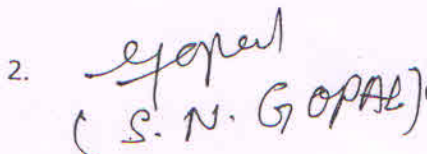 2. Gopal
(S. N. GOPAL)